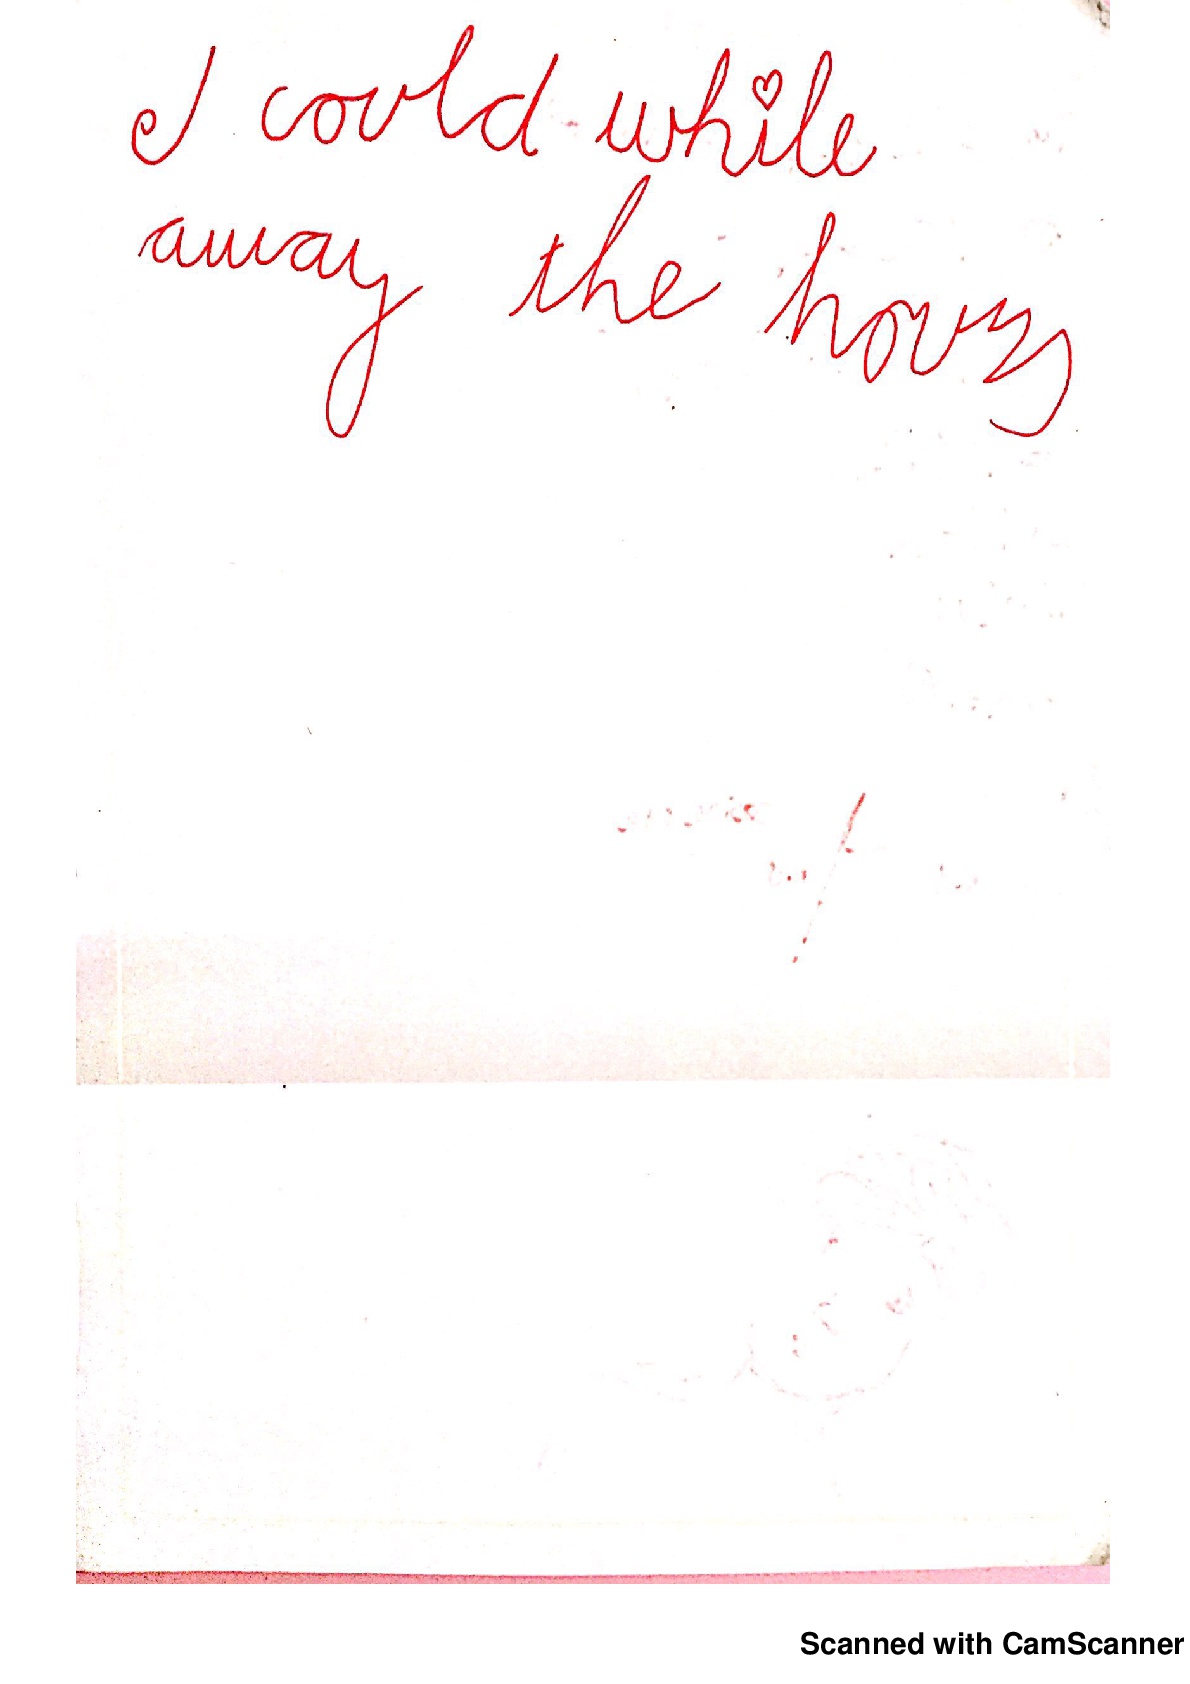 I could while
away the hours
Scanned with CamScanner